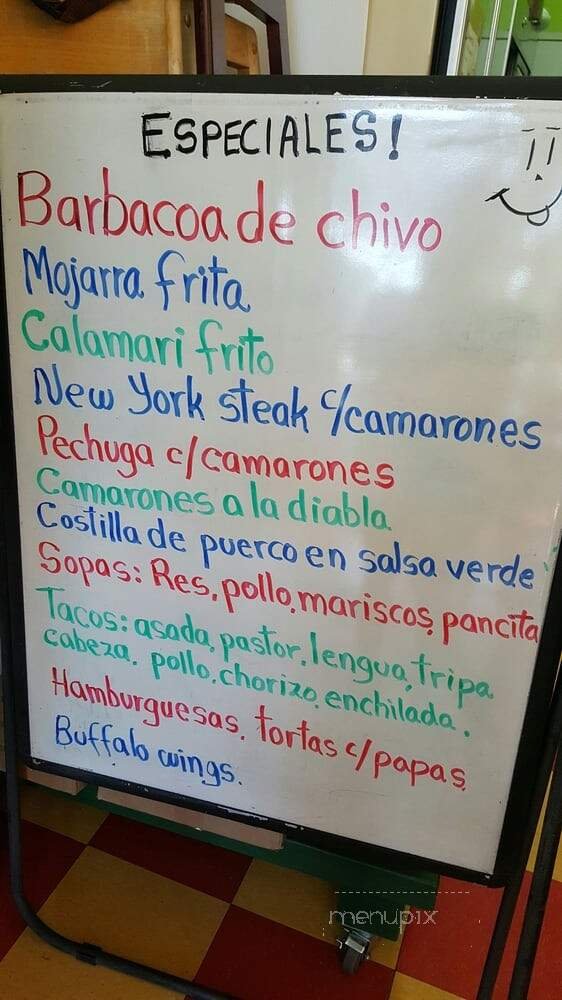 ESPECIALES!
Barbacoa de chivo
Mojarra frita
Calamari frito
New York steak c/camarones
Pechuga c/camarones
Camarones a la diabla
Costilla de puerco en salsa verde
Sopas: Res, pollo, mariscos, pancita
Tacos: asada, pastor, lengua, tripa
cabeza, pollo, chorizo, enchilada.
Hamburguesas, tortas c/papas
Buffalo wings.
menupix